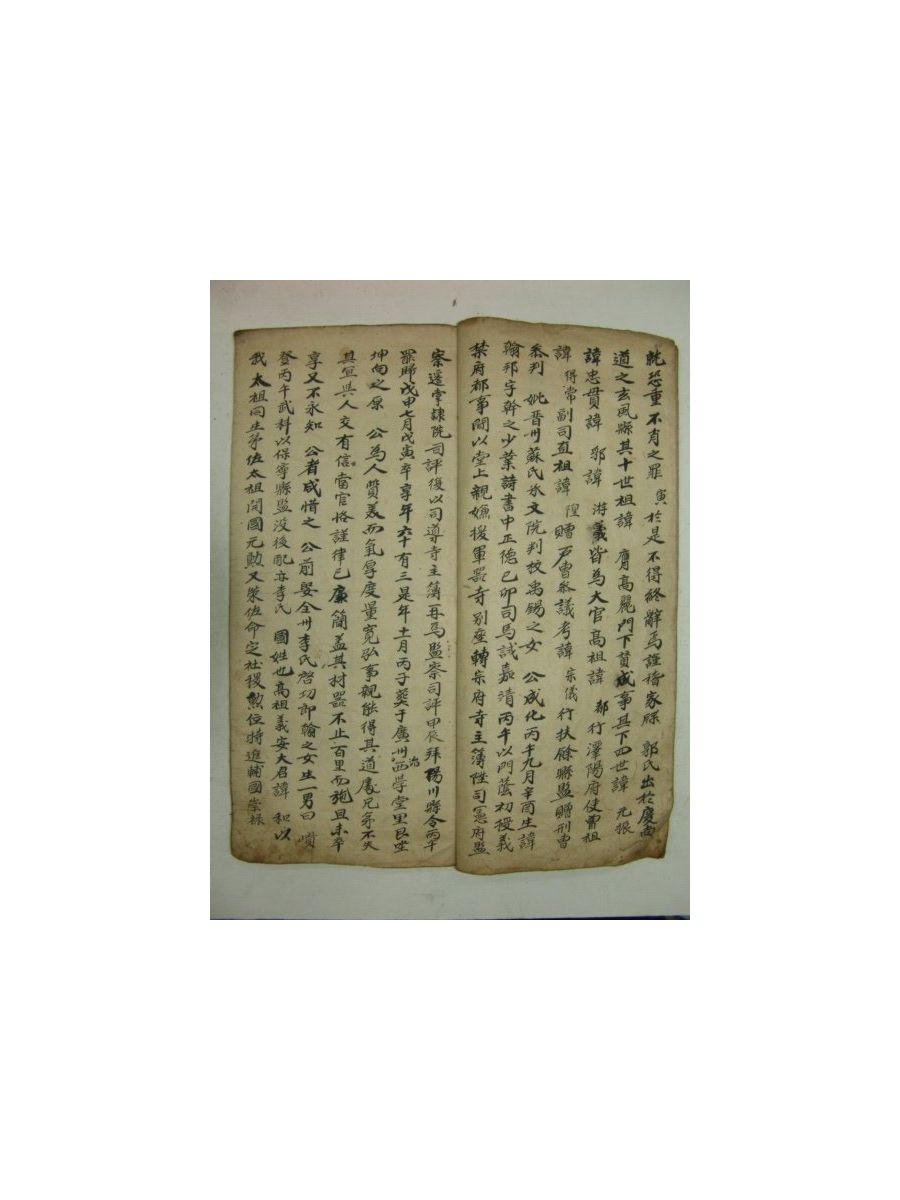 眂恐重不肖之罪 寅於是不得終辭焉謹按家牒 郭氏出於慶尙
道之玄風縣其十世祖諱 膺高麗門下贊成事其下四世諱 元振
諱忠貫諱 邪諱 游義皆為大官高祖諱 都行潭陽府使曾祖
諱 得常副司直祖諱 隍贈戶曹參議考諱 宗儀行扶餘縣監贈刑曹
參判 妣晉州蘇氏承文院判校禹錫之女 公成化丙午九月辛酉生諱
翰邦字幹之少業詩書中正德己卯司馬試嘉靖丙午以門蔭初授義
禁府都事間以堂上親嫌授軍器寺別座轉宗府寺主簿陞司憲府監
察遷掌隸院司評復以司導寺主簿再為監察司評甲辰拜楊川縣令丙午
罷歸戊申七月戊寅卒享年六十有三是年十一月丙子葬于廣州治西學堂里艮坐
坤向之原 公為人質美而氣厚度量寬弘事親能得其道處兄弟不失
其宜與人交有信當官恪謹律己廉簡蓋其材器不止百里而施且未卒
享又不永知 公者咸惜之 公前娶全州李氏啓功郎翰之女生一男曰 𡾋
登丙午武科以保寧縣監没後配亦李氏 國姓也高祖義安大君諱 和以
我 太祖同生弟佐太祖開國元勳又策佐命定社稷勲位特進輔國崇祿